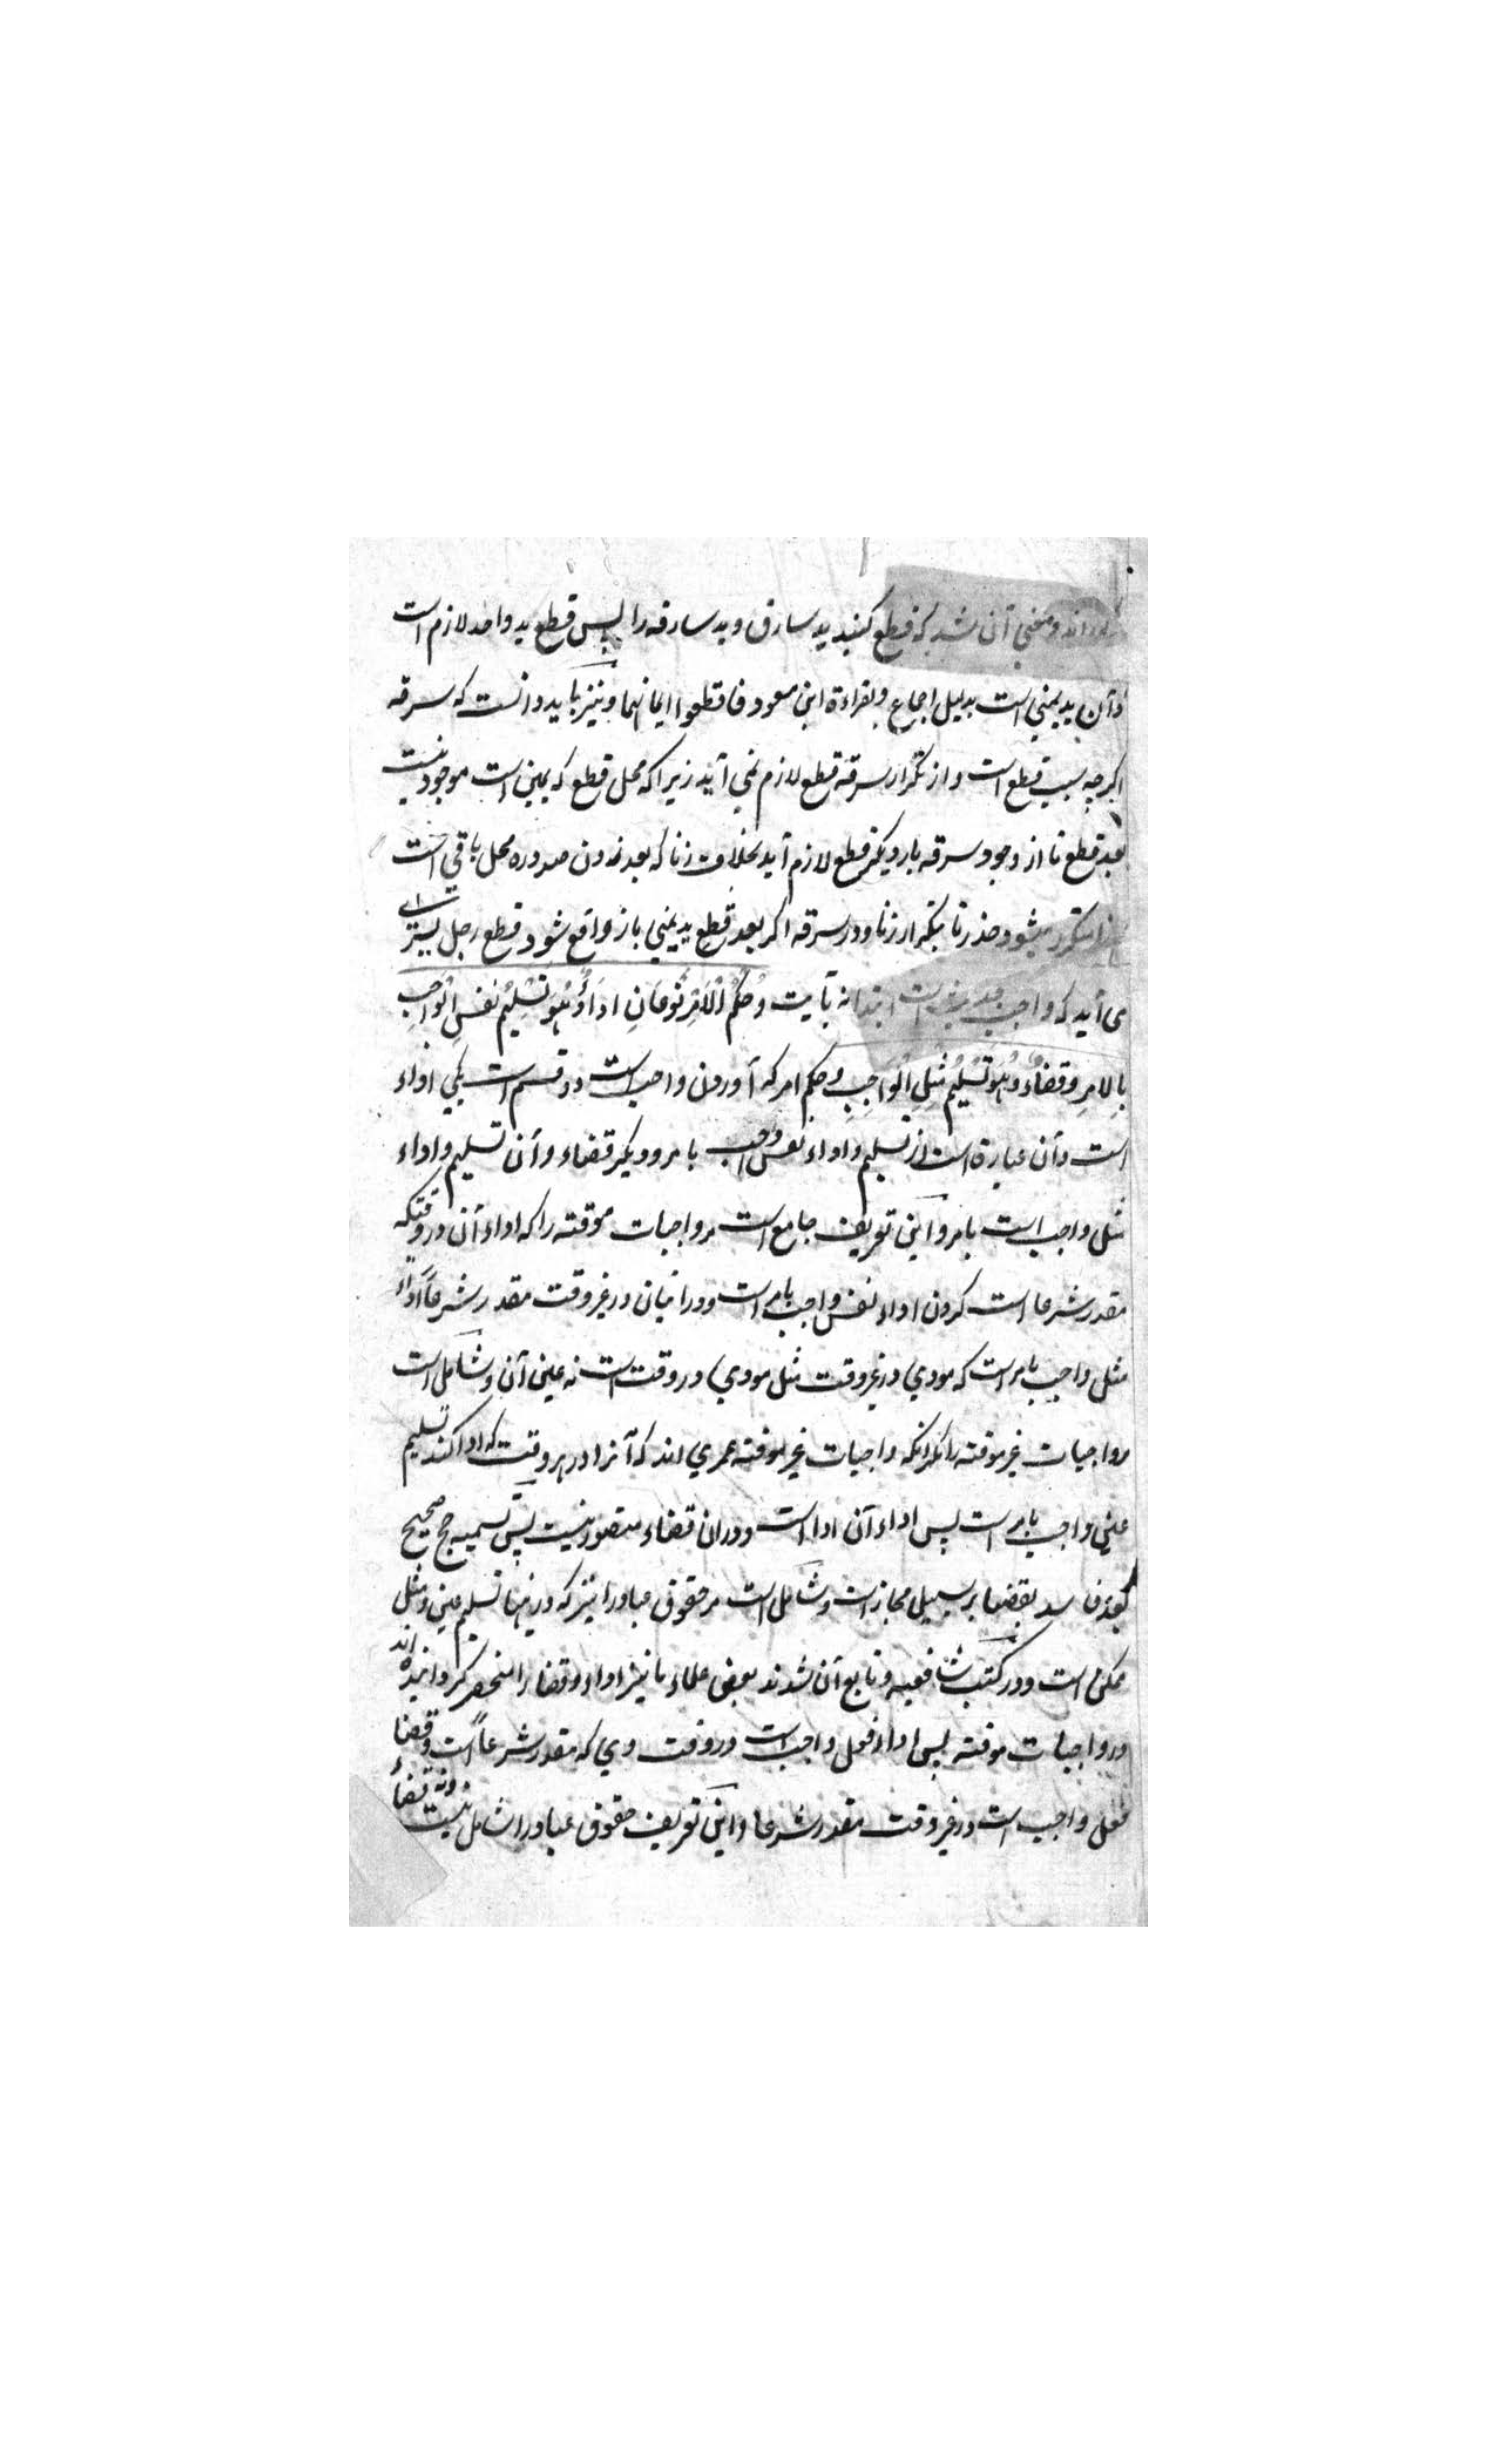 و معنی آن شد که قطع کنید ید سارق و ید سارقه را پس قطع ید واحد لازم است
و آن ید یمنی است بدلیل اجماع و بقراءة ابن مسعود فاقطعوا ایمانهما و نیز باید دانست که سرقه
اکرچه سبب قطع است و از تکرار سرقه قطع لازم نمی آید زیرا که محل قطع که یمین است موجود نیست
بعد قطع تا از وجود سرقه بار دیکر قطع لازم آید بخلاف زنا که بعد محل باقی است
متکرر میشود بتکرار زنا و در سرقه اکر بعد قطع ید یمنی باز واقع شود قطع رجل یسری
می آید که واجب نه بآیت وَحُکْمُ الْاَمْرِ نَوْعَانِ اَدَاءٌ وَهُوَ تَسْلِیْمُ نَفْسِ الْوَاجِبِ
بِالامرِ وَقَضَاءٌ وَهُوَ تَسْلِیْمُ مِثْلِ الْوَاجِبِ و حکم امر که آوردن واجب است دو قسم است یکی اداء
است و آن عبارة است از تسلیم و اداء نفس واجب بامر و دیکر قضاء و آن تسلیم و اداء
مثل واجب است بامر و این تعریف جامع است مر واجبات موقته را که اداء آن در وقتیکه
مقدر شرعا است کردن اداء نفس واجب بامر است و در اتیان در غیر وقت مقدر شرعاً اداء
مثل واجب بامر است که مودی در غیر وقت مثل مودی در وقت است نه عین آن و شامل است
مر واجبات غیر موقته را زیرانکه واجبات غیر موقته عمری اند که آنرا در هر وقت که ادا کند تسلیم
عین واجب بامر است پس اداء آن ادا است و در ان قضاء متصور نیست پس تسمیه حج صحیح
بعد فاسد بقضا بر سبیل مجاز است و شامل است مر حقوق عباد را نیز که در ینها تسلیم عین و مثل
ممکن است و در کتب شافعیه و تابع آن شدند بعض علماء ما نیز اداء و قضاء را منحصر کردانیده اند
در واجبات موقته پس اداء فعل واجب است در وقت وی که مقدر شرعاً است و قضا
فعل واجب است در غیر وقت مقدر شرعا و این تعریف حقوق عباد را شامل نیست و نه قضاء